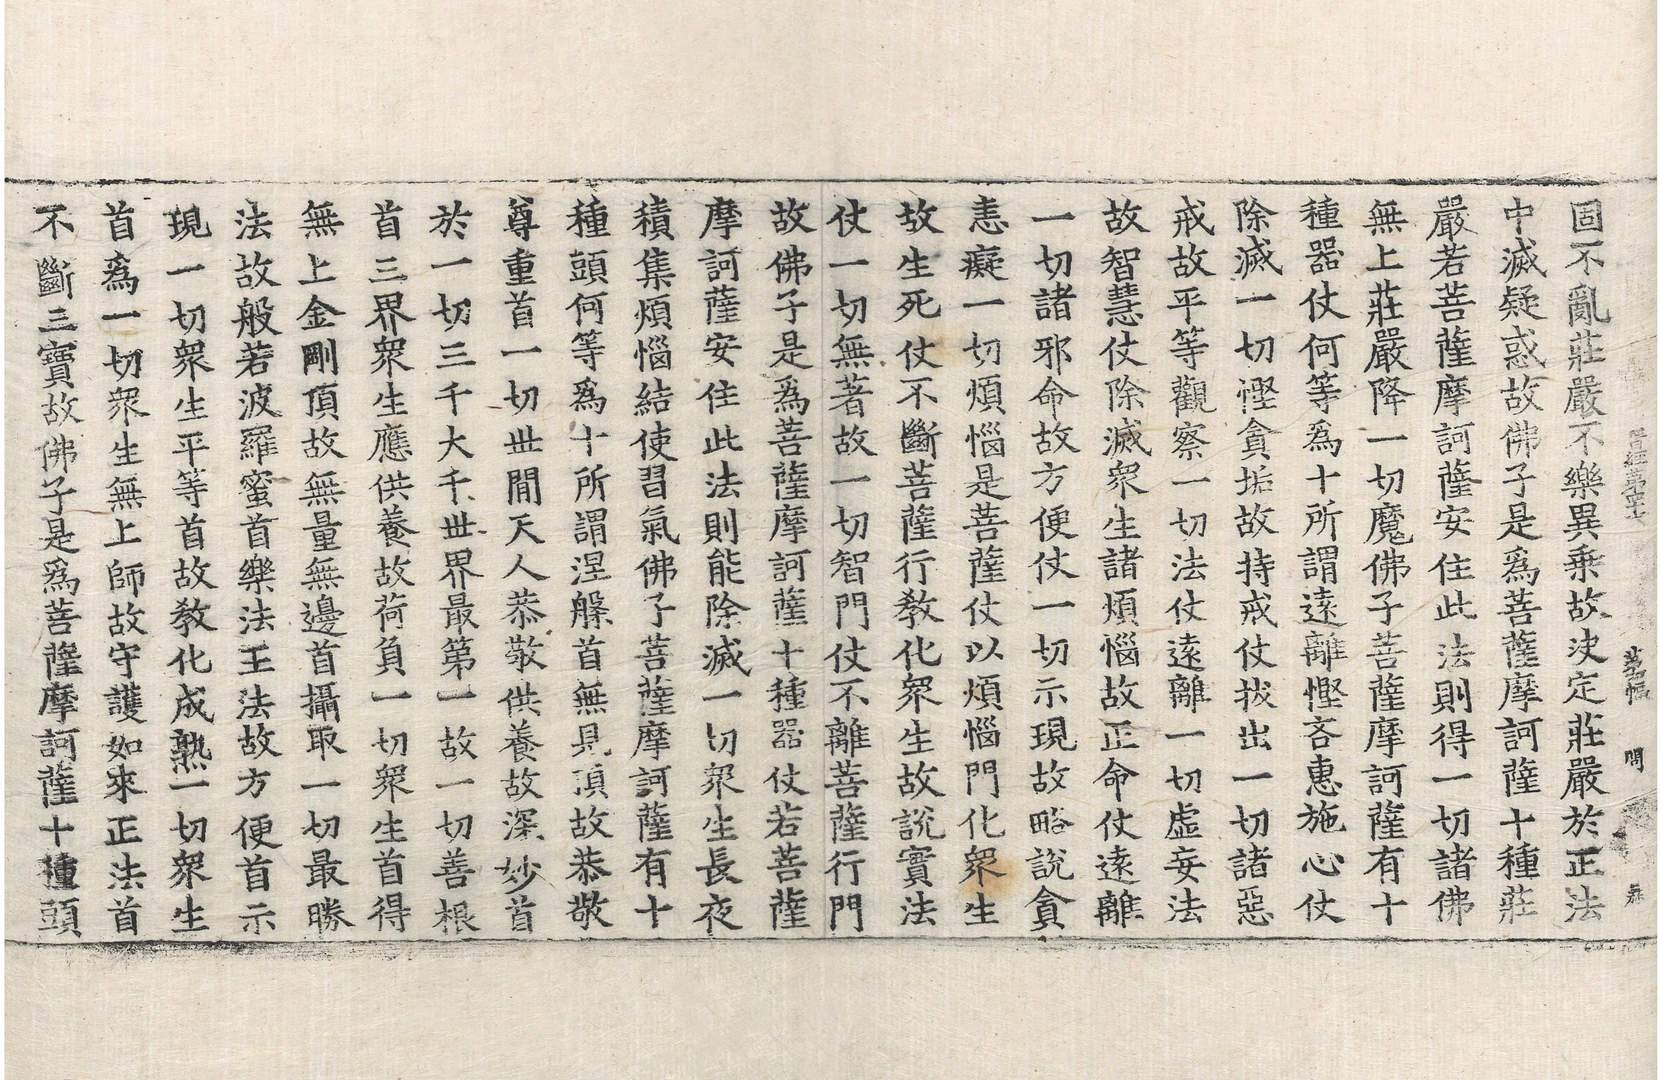 固不亂莊嚴不樂異乗故决定莊嚴於正法
中滅疑惑故佛子是爲菩薩摩訶薩十種莊
嚴若菩薩摩訶薩安住此法則得一切諸佛
無上莊嚴降一切魔佛子菩薩摩訶薩有十
種器仗何等爲十所謂遠離慳吝惠施心仗
除滅一切慳貪垢故持戒仗拔出一切諸惡
戒故平等觀察一切法仗遠離一切虛妄法
故智慧仗除滅衆生諸煩惱故正命仗遠離
一切諸邪命故方便仗一切示現故略說貪
恚癡一切煩惱是菩薩仗以煩惱門化衆生
故生死仗不斷菩薩行教化衆生故說實法
仗一切無著故一切智門仗不離菩薩行門
故佛子是爲菩薩摩訶薩十種器仗若菩薩
摩訶薩安住此法則能除滅一切衆生長夜
積集煩惱結使習氣佛子菩薩摩訶薩有十
種頭何等爲十所謂涅槃首無見頂故恭敬
尊重首一切世間天人恭敬供養故深妙首
於一切三千大千世界最第一故一切善根
首三界衆生應供養故荷負一切衆生首得
無上金剛頂故無量無邊首攝取一切最勝
法故般若波羅蜜首樂法王法故方便首示
現一切衆生平等首故教化成熟一切衆生
首爲一切衆生無上師故守護如來正法首
不斷三寶故佛子是爲菩薩摩訶薩十種頭